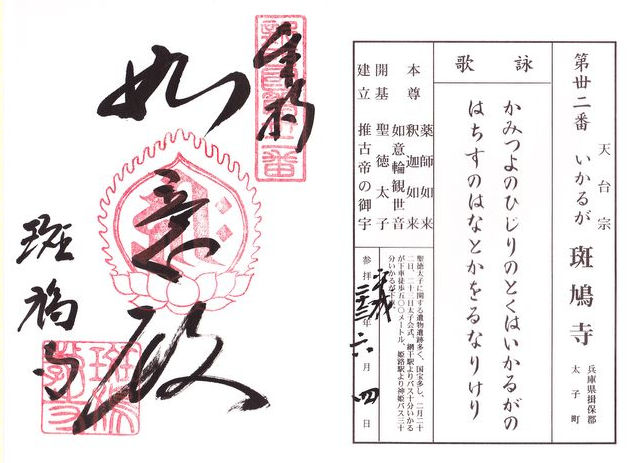 第丗二番
天台宗
いかるが 斑鳩寺
兵庫県揖保郡
太子町
詠歌
かみつよのひじりのとくはいかるがの
はちすのはなとかをるなりけり
本尊 薬師如来
釈迦如来
如意輪観世音
開基 聖徳太子
建立 推古帝の御宇
聖徳太子に関する遺物遺跡多く、国宝多し、二月二十
二日、二十三日太子会式、網干駅よりバス十分いかる
が下車徒歩五〇〇メートル、姫路駅より神姫バス三十
分いかるが下車。
参拝 平成 年六月四日
奉拝
如意殿
斑鳩寺
斑鳩寺